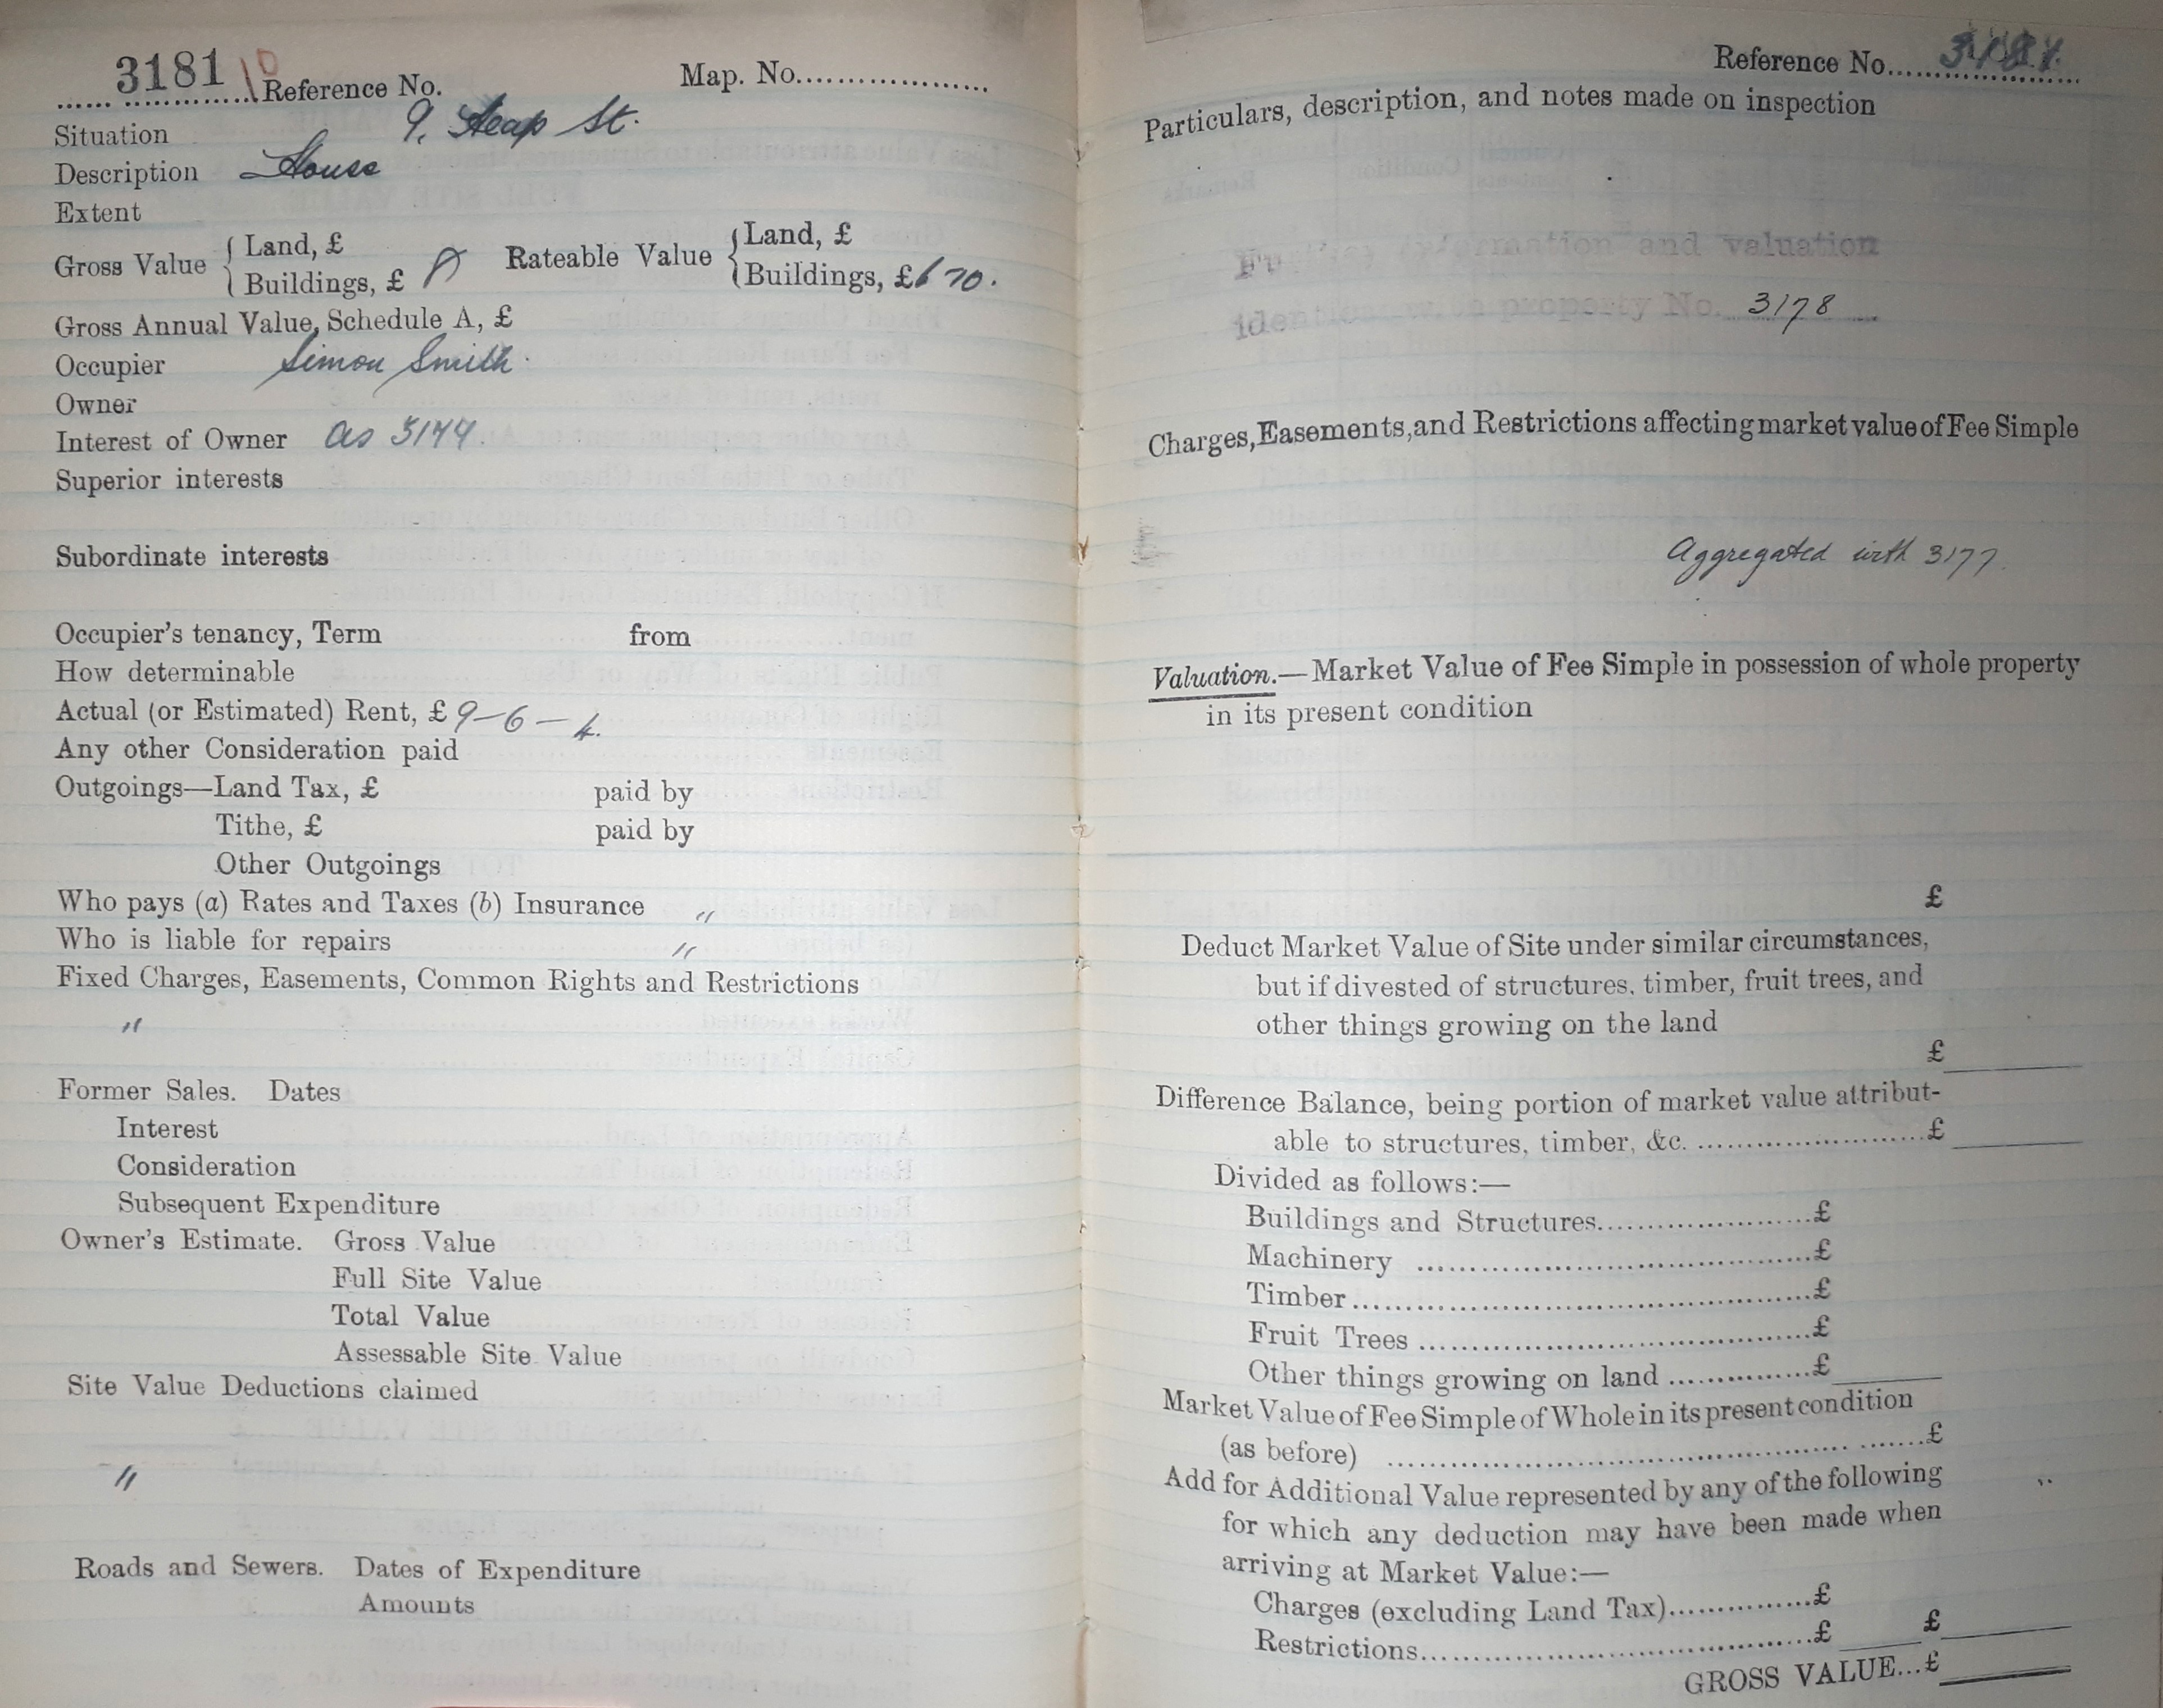 3181 Reference No. Map. No..................
Situation 9, Heap St.
Description House
Extent
Gross Value { Land, £
Buildings, £
Rateable Value { Land, £
Buildings, £ 6 10.
Gross Annual Value, Schedule A, £
Occupier Simon Smith.
Owner
Interest of Owner as 3144.
Superior interests
Subordinate interests
Occupier's tenancy, Term from
How determinable
Actual (or Estimated) Rent, £ 9-6-4.
Any other Consideration paid
Outgoings—Land Tax, £ paid by
Tithe, £ paid by
Other Outgoings
Who pays (a) Rates and Taxes (b) Insurance "
Who is liable for repairs "
Fixed Charges, Easements, Common Rights and Restrictions
"
Former Sales. Dates
Interest
Consideration
Subsequent Expenditure
Owner's Estimate. Gross Value
Full Site Value
Total Value
Assessable Site Value
Site Value Deductions claimed
"
Roads and Sewers. Dates of Expenditure
Amounts
Reference No. 3181.
Particulars, description, and notes made on inspection
Further information and valuation
identical with property No. 3178
Charges, Easements, and Restrictions affecting market value of Fee Simple
Aggregated with 3177
Valuation.—Market Value of Fee Simple in possession of whole property
in its present condition
£
Deduct Market Value of Site under similar circumstances,
but if divested of structures, timber, fruit trees, and
other things growing on the land
£
Difference Balance, being portion of market value attribut-
able to structures, timber, &c. ........................£
Divided as follows:—
Buildings and Structures.....................£
Machinery ........................................£
Timber..............................................£
Fruit Trees .......................................£
Other things growing on land ...............£
Market Value of Fee Simple of Whole in its present condition
(as before) ........................................£
Add for Additional Value represented by any of the following
for which any deduction may have been made when
arriving at Market Value:—
Charges (excluding Land Tax)...............£
Restrictions.......................................£ £
GROSS VALUE...£